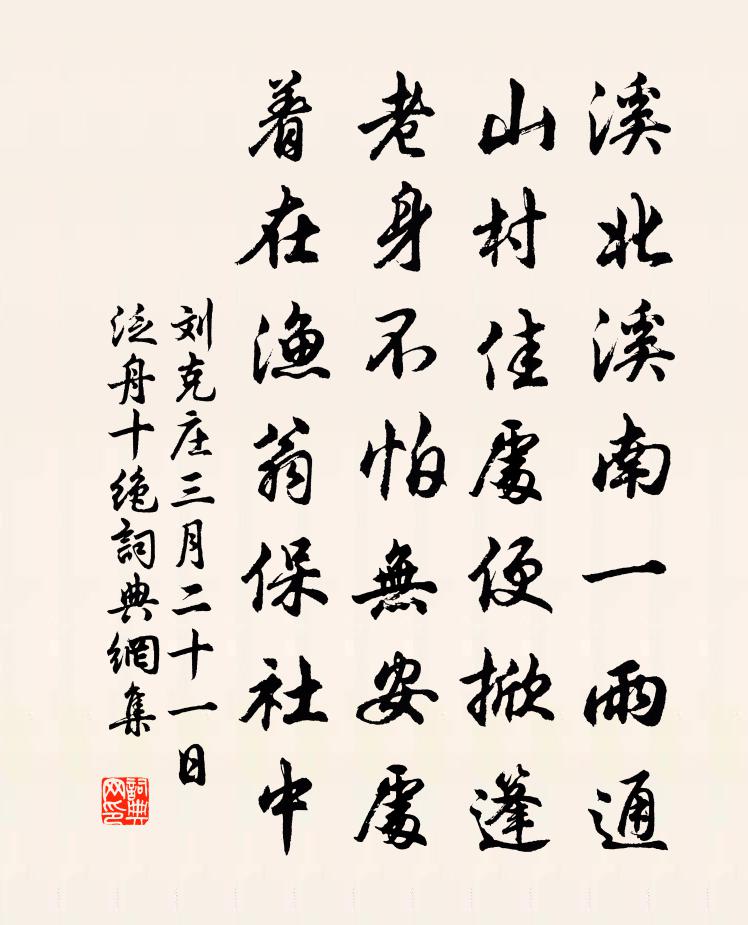 溪北溪南一雨通
山村佳處便掀篷
老身不怕無安處
着在漁翁保社中
刘克庄三月二十一日
泛舟十绝詞典網集
詞典网印